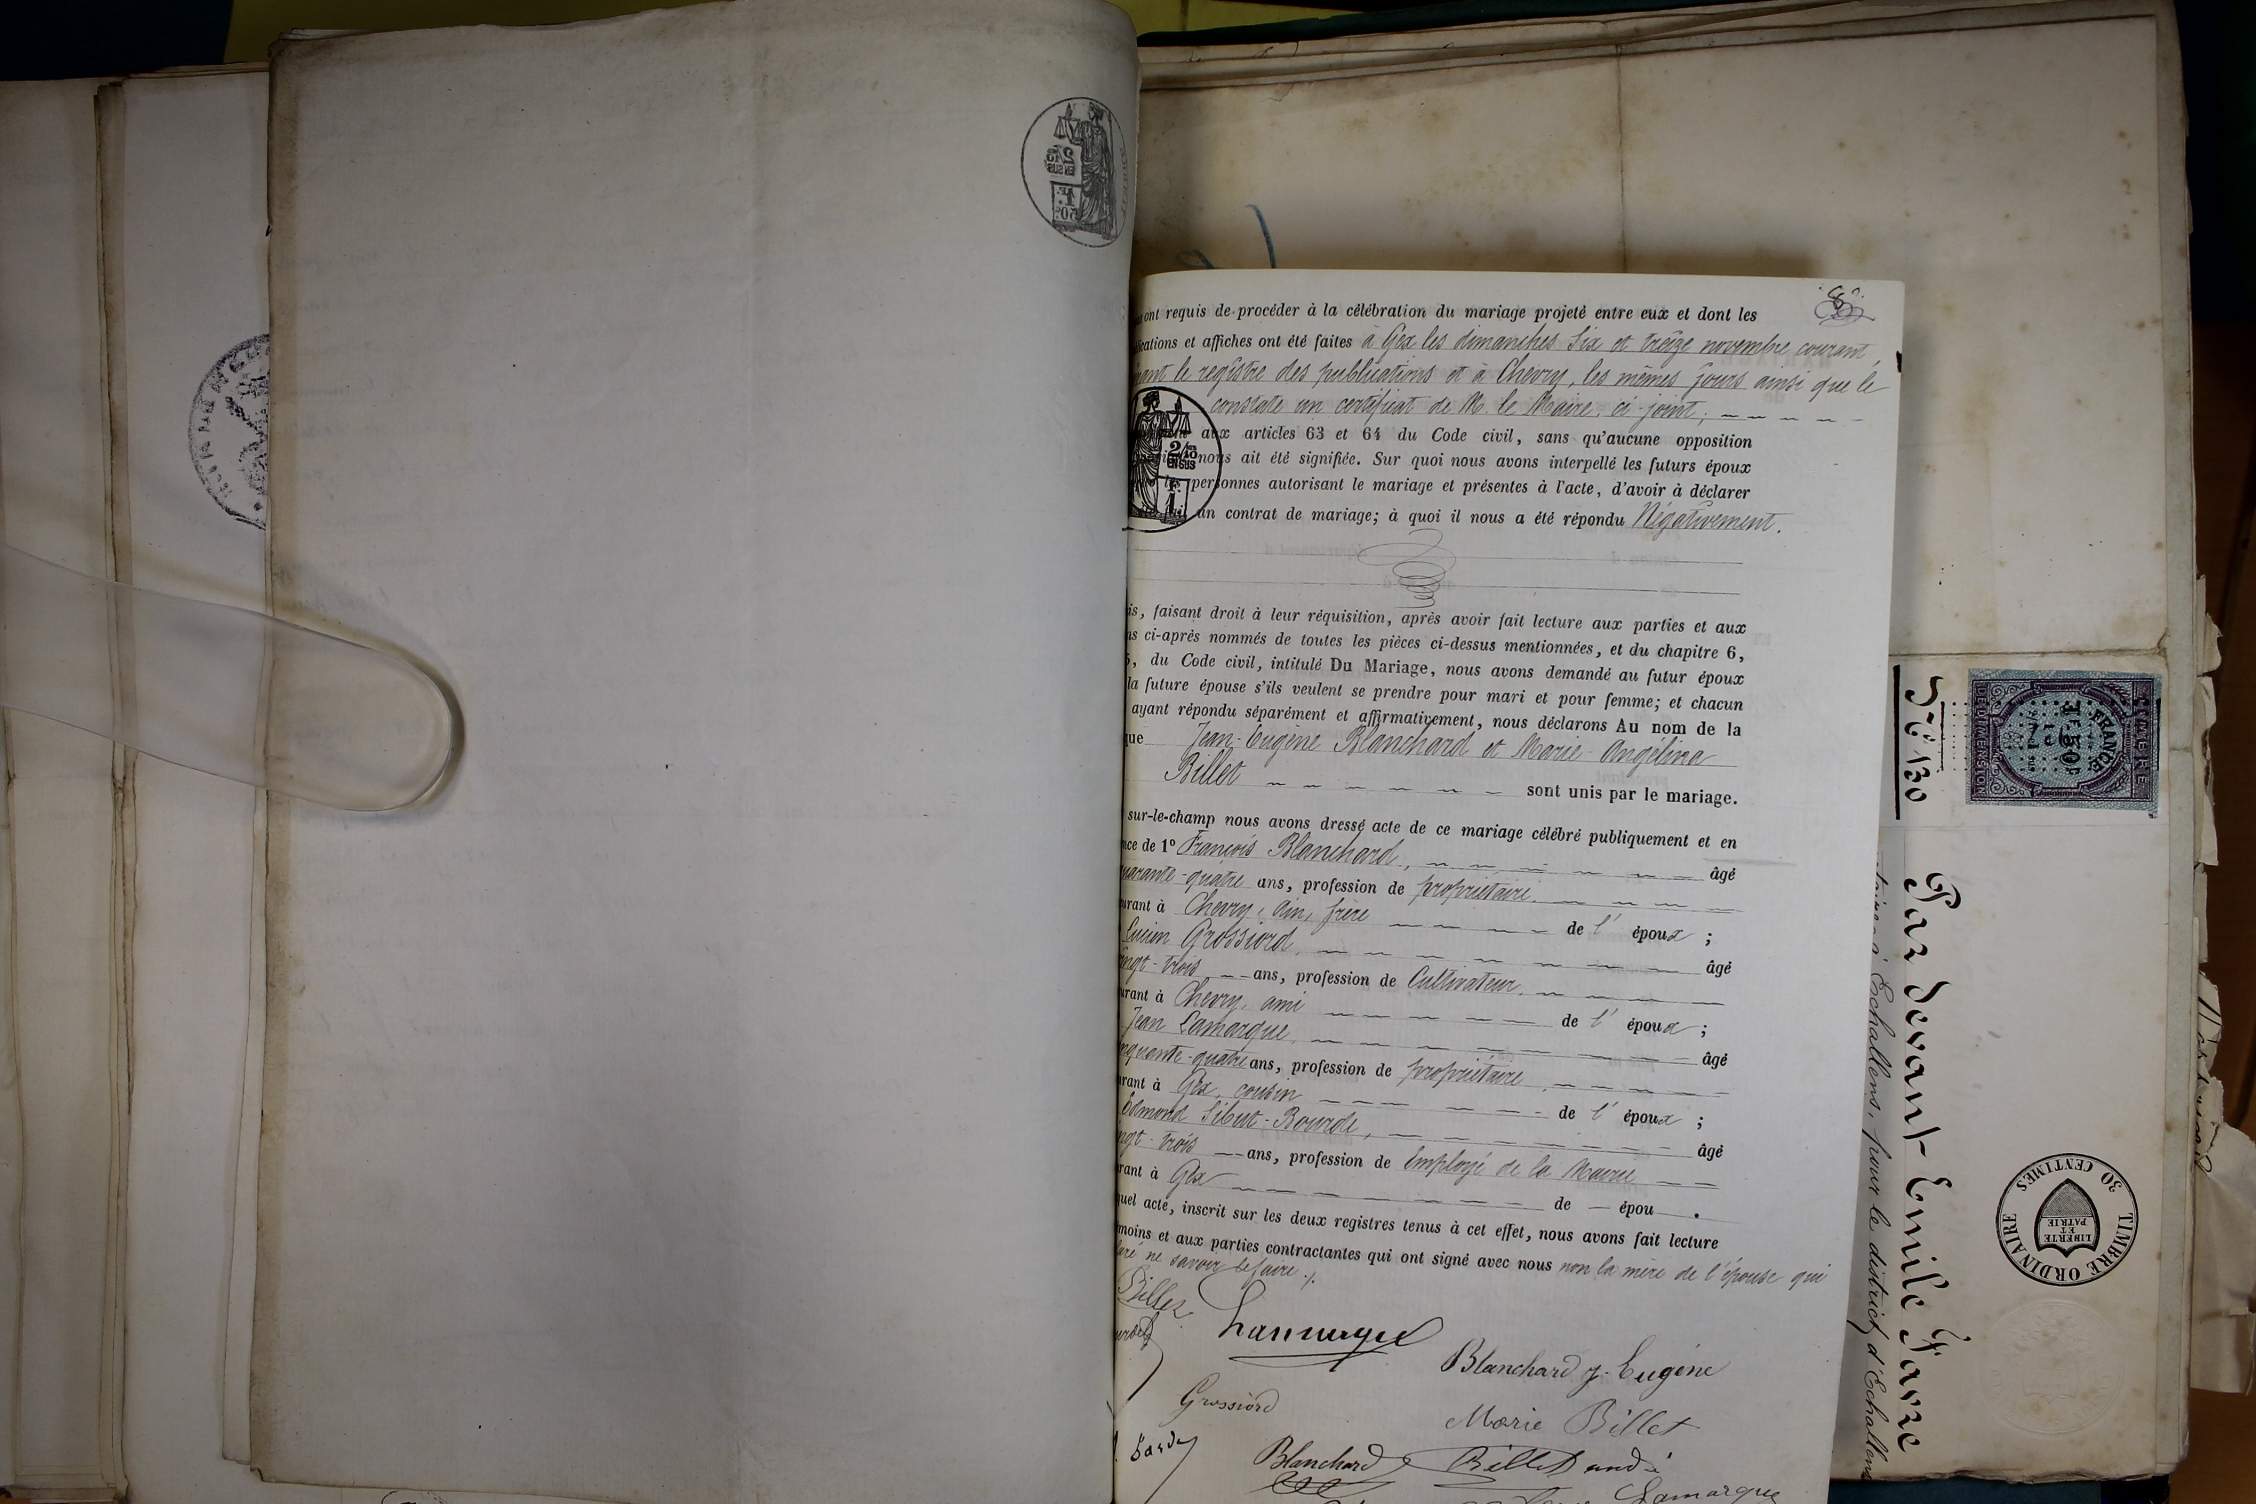 ont requis de procéder à la célébration du mariage projeté entre eux et dont les
et affiches ont été faites à Gex les dimanches Six et treize novembre courant
le registre des publications et à Chevry, les mêmes jours ainsi que le
constate un certificat de M. le Maire, ci-joint;
aux articles 63 et 64 du Code civil, sans qu'aucune opposition
nous ait été signifiée. Sur quoi nous avons interpellé les futurs époux
les personnes autorisant le mariage et présentes à l'acte, d'avoir à déclarer
un contrat de mariage; à quoi il nous a été répondu Négativement.
faisant droit à leur réquisition, après avoir fait lecture aux parties et aux
ci-après nommés de toutes les pièces ci-dessus mentionnées, et du chapitre 6,
du Code civil, intitulé Du Mariage, nous avons demandé au futur époux
la future épouse s'ils veulent se prendre pour mari et pour femme; et chacun
ayant répondu séparément et affirmativement, nous déclarons Au nom de la
que Jean-Eugène Blanchard et Marie-Angélina
Billet sont unis par le mariage.
sur-le-champ nous avons dressé acte de ce mariage célébré publiquement et en
de 1° François Blanchard, âgé
quarante-quatre ans, profession de propriétaire
à Chevry, Ain, frère de l'époux;
Lucien Grossiord, âgé
vingt-trois ans, profession de Cultivateur,
à Chevry, ami de l'époux;
Jean Lamarque, âgé
cinquante-quatre ans, profession de propriétaire
à Gex, cousin de l'époux;
Edmond Sibut-Bourde, âgé
vingt-trois ans, profession de Employé de la Mairie
à Gex de — épou .
acte, inscrit sur les deux registres tenus à cet effet, nous avons fait lecture
et aux parties contractantes qui ont signé avec nous non la mère de l'épouse qui
ne savoir le faire ./.
Billet
Lamarque
Blanchard J. Eugène
Grossiord
Marie Billet
Blanchard
Billet andré
Lamarque
2/10 EN SUS
1F. 50c
2/10
EN SUS
TIMBRE
FRANCE
1F 50c
DE DIMENSION
Par devant Emile Favre
à Echallens, pour le district d'Echallens
TIMBRE ORDINAIRE
30 CENTIMES
LIBERTÉ
ET
PATRIE